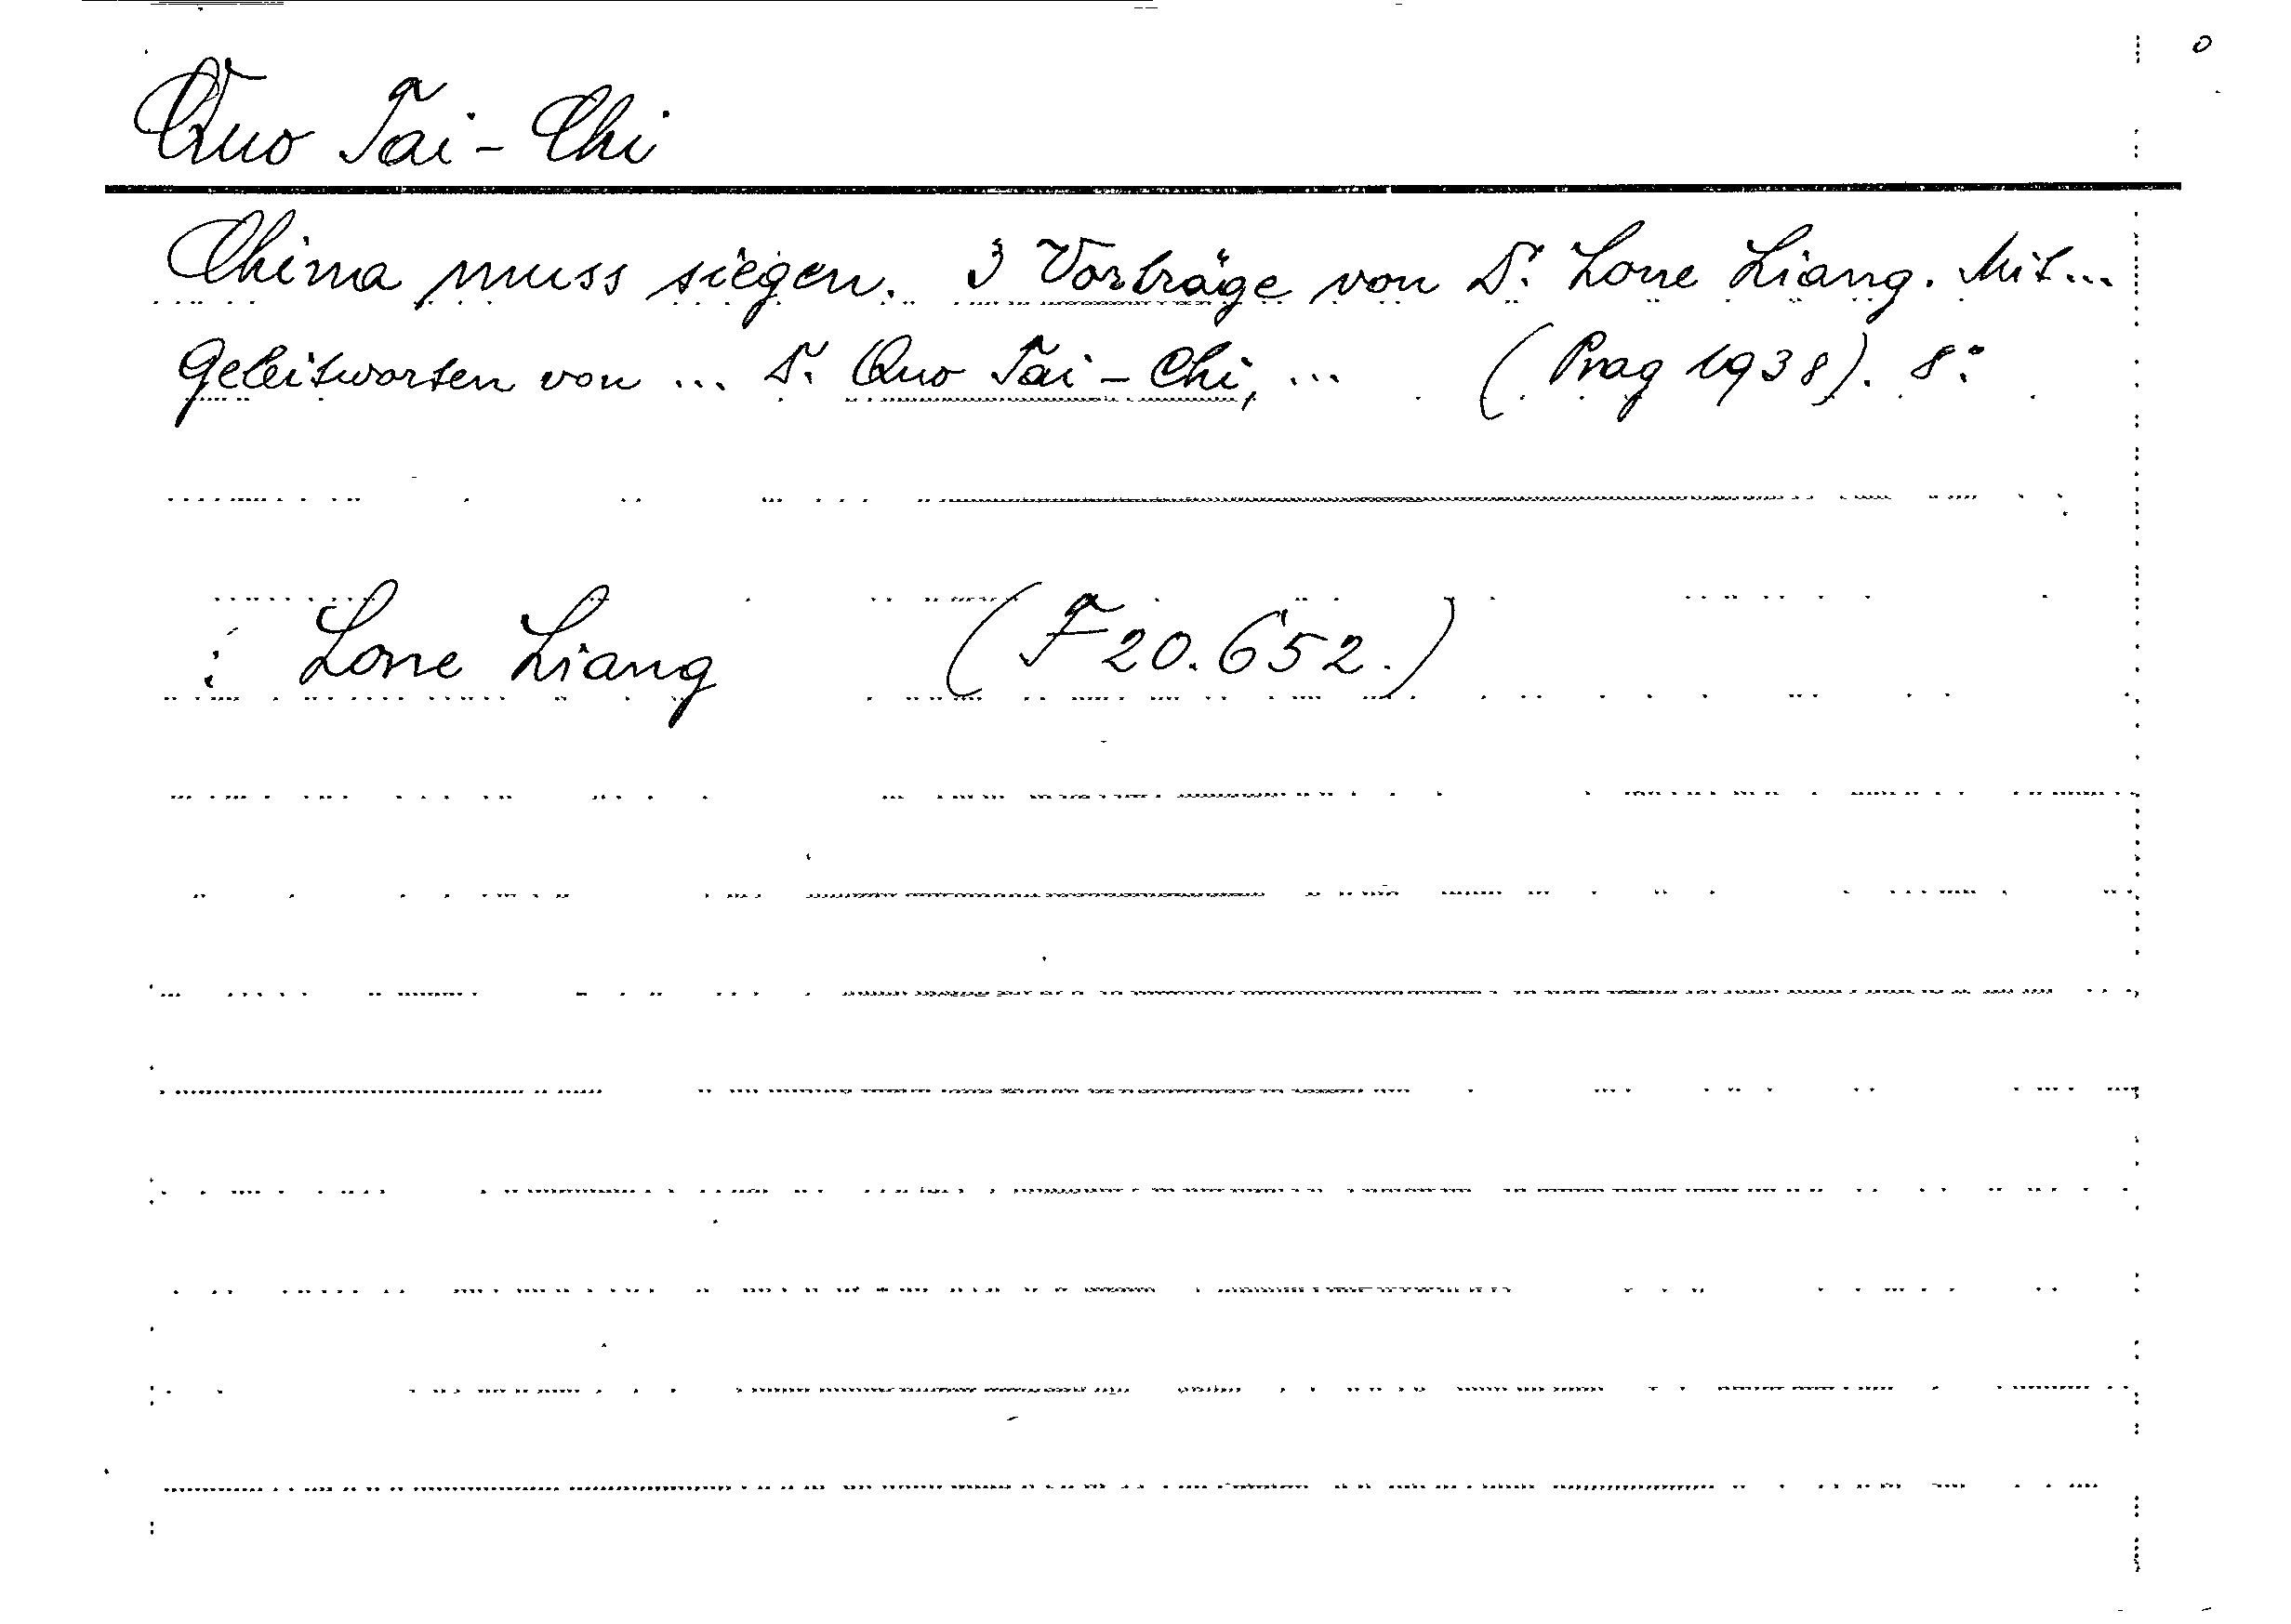 Quo Tai-Chi
China muss siegen. 3 Vorträge von Dr. Lone Liang. Mit...
Geleitworten von ... Dr. Quo Tai-Chi, ... (Prag 1938). 8°.
: Lone Liang (F 20.652.)